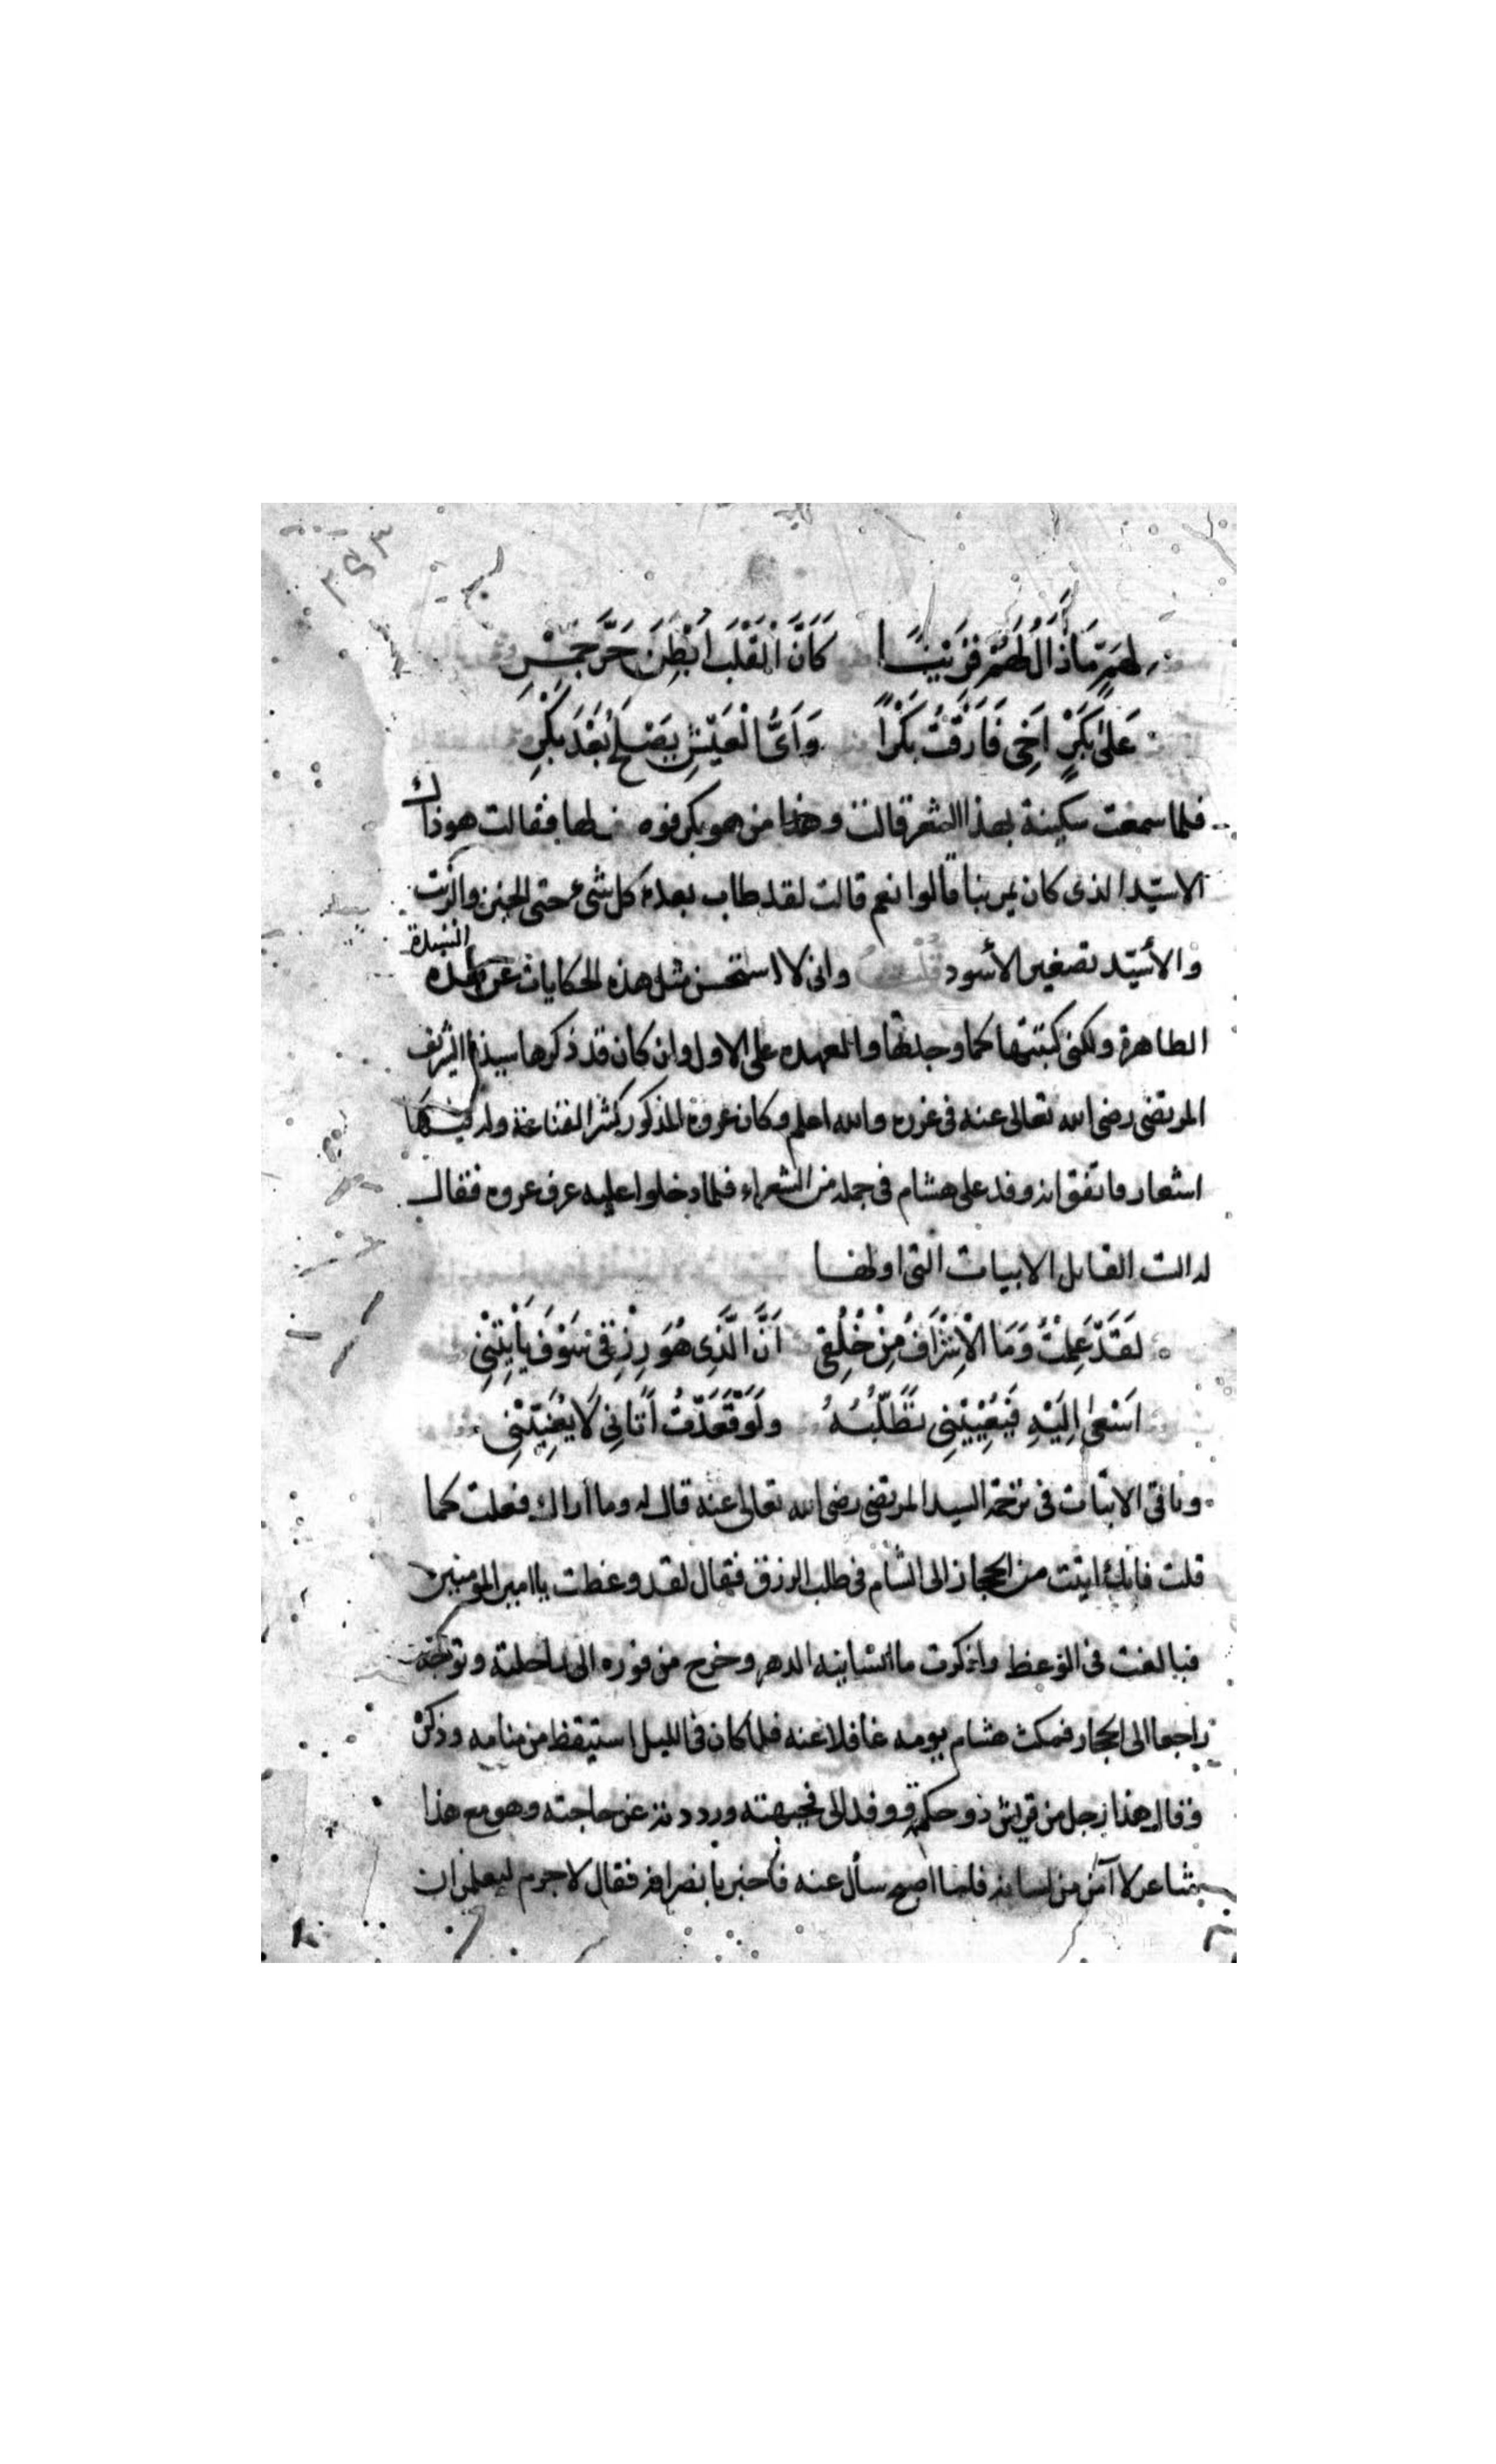 ٣٤٣
لِهَمٍّ مَا أَزَالُ لَهُ قَرِينًا كَأَنَّ الْقَلْبَ أُبْطِنَ حَرَّ جَمْرِ
عَلىٰ بَكْرٍ أَخِي فَارَقْتُ بَكْرًا وَأَىُّ الْعَيْشِ يَصْلُحُ بَعْدَ بَكْرِ
فلما سمعت سكينة بهذا الشعر قالت وهذا من هو بكر فوصف لها فقالت هو ذاك
الاسيّد الذى كان يمر بنا قالوا نعم قالت لقد طاب بعده كل شىء حتى الخبز والزيت
والأسيّد تصغير الأسود قلت وانى لا استحسن مثل هذه الحكايات عن السيدة
الطاهرة ولكنى كتبتها كما وجدتها والعهده على الاول وان كان قد ذكرها سيدنا الشريف
المرتضى رضى الله تعالى عنه فى غرره والله اعلم وكان عروة المذكور كثير القناعة وله فيها
اشعار واتفق انه وفد على هشام فى جملة من الشعراء فلما دخلوا عليه عرف عروه فقال
له الست القايل الابيات التى اولها
لَقَدْ عَلِمْتُ وَمَا الْاِشْرَافُ مِنْ خُلُقِى أَنَّ الَّذِى هُوَ رِزْقِى سَوْفَ يَأْتِيْنِى
اَسْعىٰ اِلَيْهِ فَيُعْيِيْنِى تَطَلُّبُهُ وَلَوْ قَعَدْتُ أَتَانِى لَا يُعَنِّيْنِى
وباقى الابيات فى ترجمة السيد المرتضى رضى الله تعالى عنه قال له وما اراك فعلت كما
قلت فانك اتيت من الحجاز الى الشام فى طلب الرزق فقال لقد وعظت يا امير المومنين
فبالغت فى الوعظ واذكرت ما انسانيه الدهر وخرج من فوره الى راحلته وتوجه
راجعا الى الحجاز فمكث هشام يومه غافلا عنه فلما كان فى الليل استيقظ من منامه وذكره
وقال هذا رجل من قريش ذو حكمة وفد الى فجبهته ورددته عن حاجته وهو مع هذا
شاعر لا آمن من لسانه فلما اصبح سأل عنه فاخبر بانصرافه فقال لا جرم ليعلمن ان